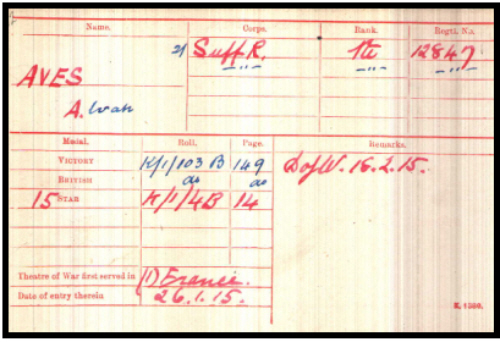 Name. Corps. Rank. Regtl. No.
2/ Suff. R. Pte 12847
AVES
A.
Medal. Roll. Page. Remarks.
VICTORY K/1/103 B 149 D of W. 16.2.15.
BRITISH do do
15 STAR K/1/4B 14
Theatre of War first served in (1) France.
Date of entry therein 26.1.15.
K. 1380.